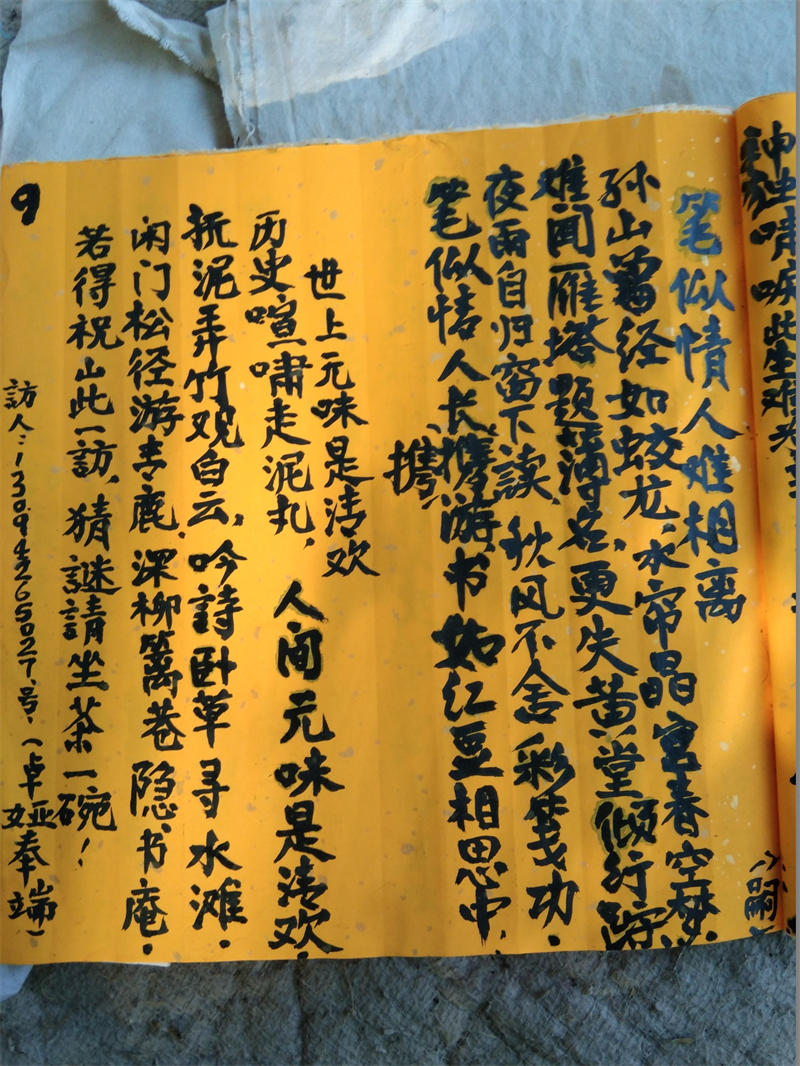 神
晴
此生难
嗣
笔似情人难相离
孙山曾经如蛟龙，水帘晶宫春空梦
难闻雁塔题薄名，更失黄堂倾行
夜雨自归窗下读，秋风不舍彩笺功．
笔似情人长携游书如红豆相思中．
携
世上元味是清欢
历史喧啸走泥丸，人间元味是清欢．
抚泥弄竹观白云，吟詩卧草寻水滩．
闲门松径游青鹿，深柳篱巷隐书庵．
若得祝山此一訪，猜謎請坐茶一碗！
訪人：13094265027号，（卓娅奉端）
9